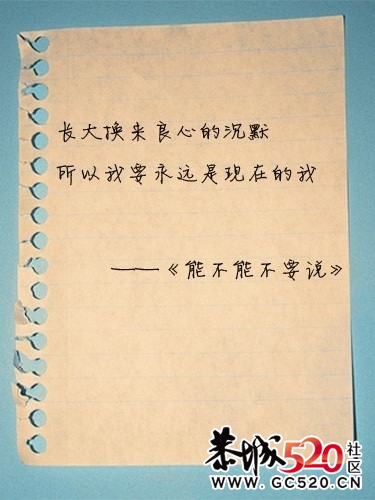 长大换来良心的沉默
所以我要永远是现在的我
——《能不能不要说》
恭城520社区
WWW.GC520.CN